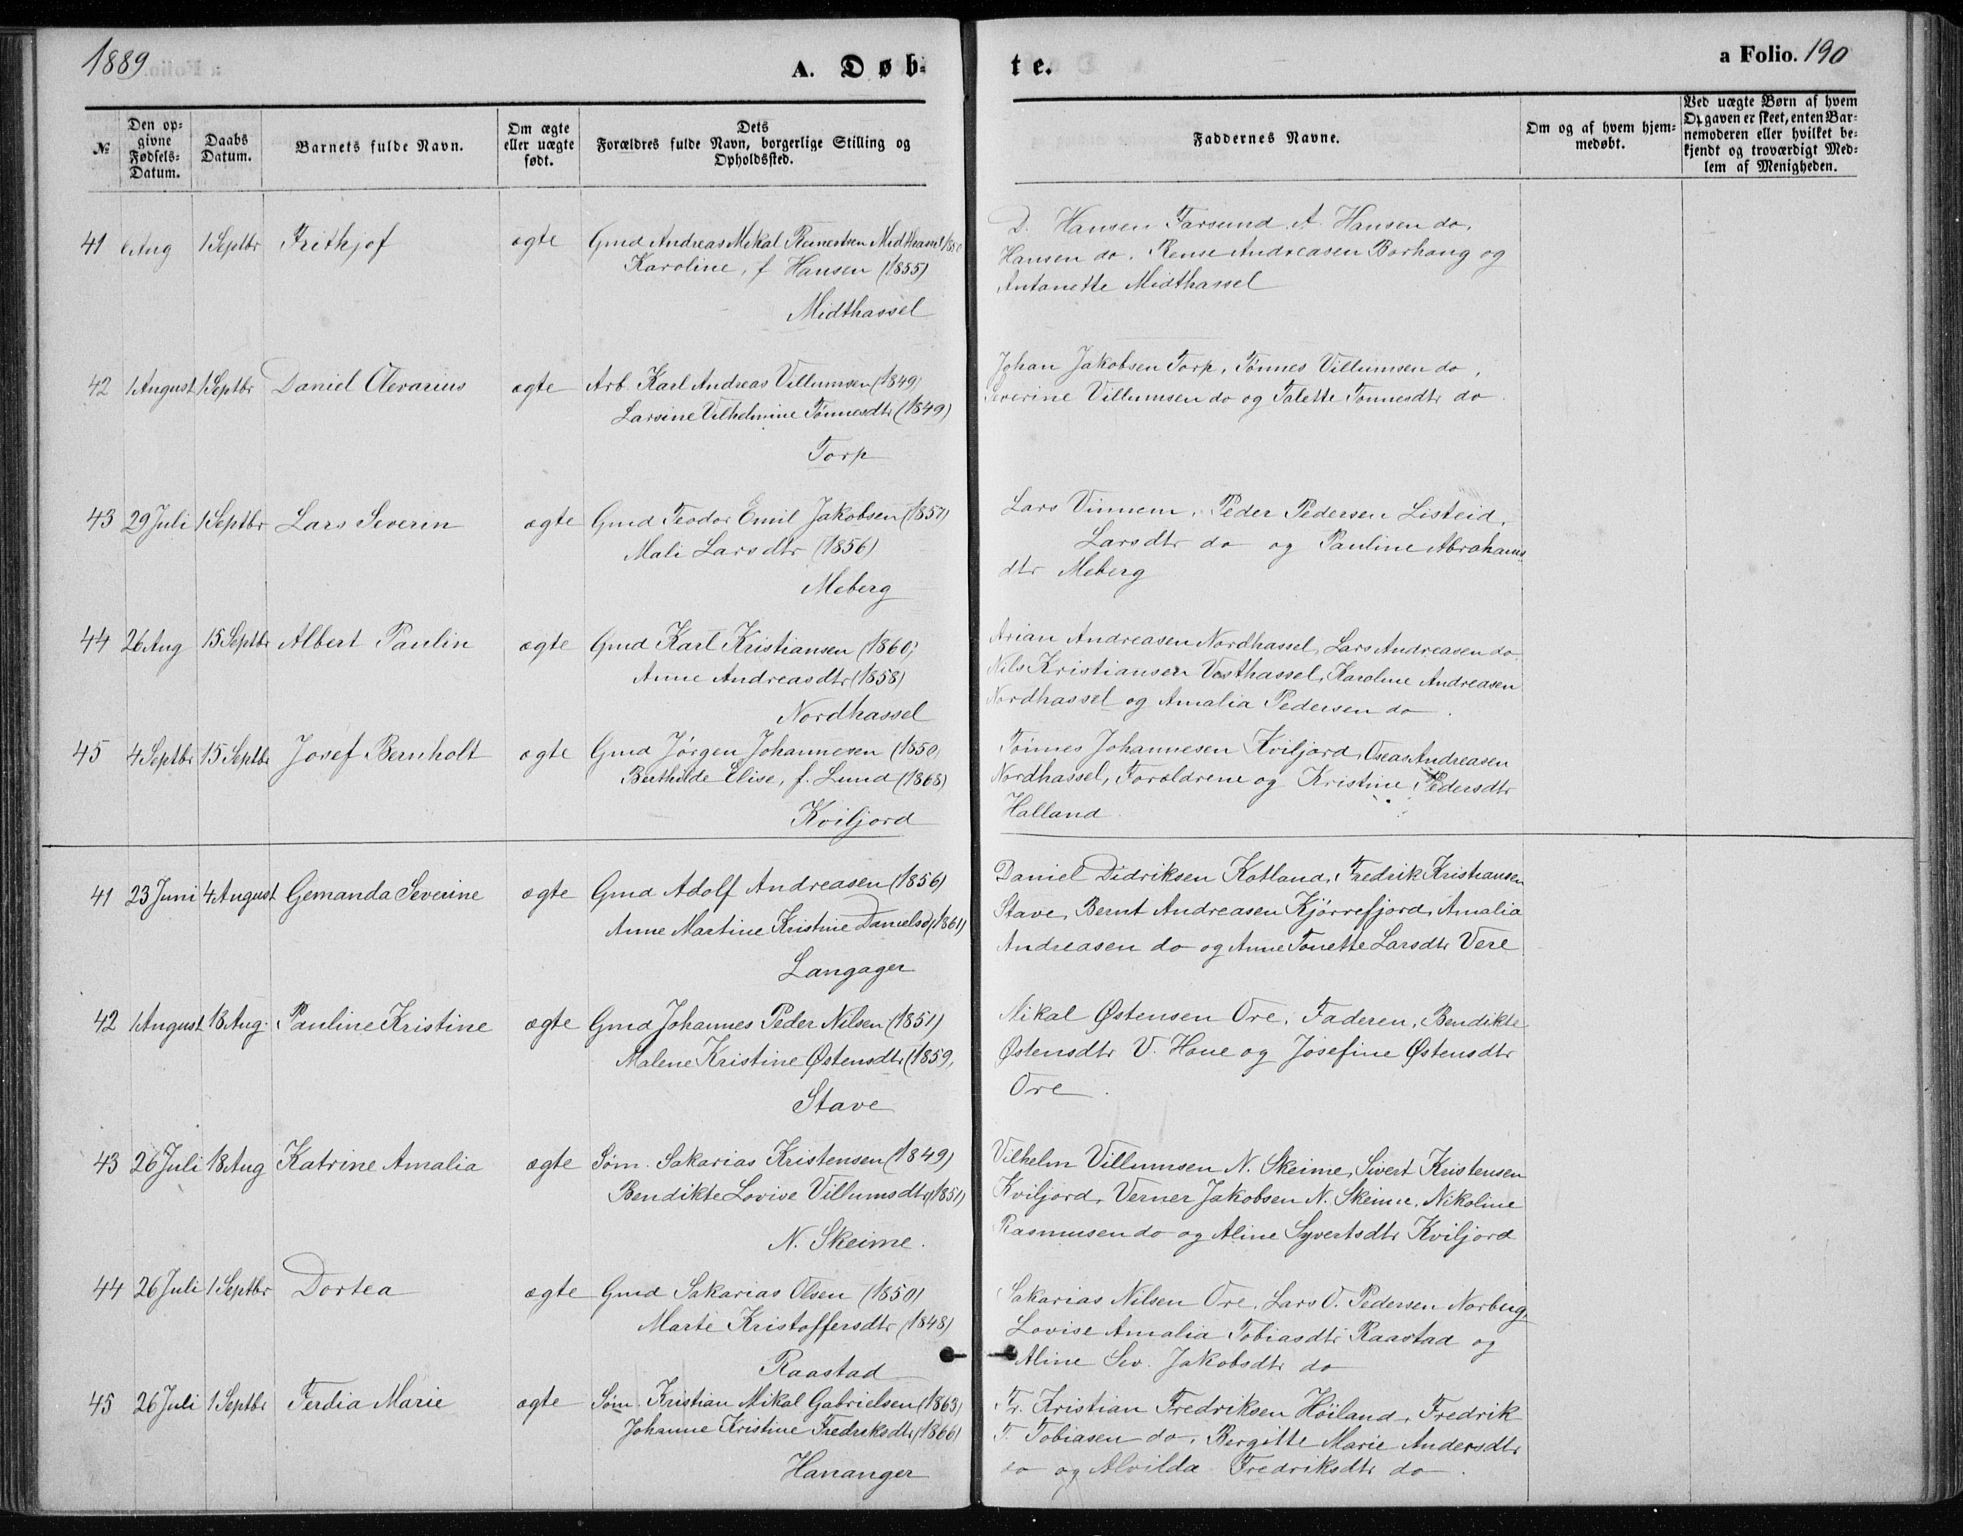 1889
A. Døb-
te.
a Folio. 190
№
Den opgivne Fødsels-Datum.
Daabs Datum.
Barnets fulde Navn.
Om ægte eller uægte født.
Dets Forældres fulde Navn, borgerlige Stilling og Opholdssted.
Faddernes Navne.
Om og af hvem hjemmedøbt.
Ved uægte Børn af hvem Opgaven er skeet, enten Barnemoderen eller hvilket bekjendt og troværdigt Medlem af Menigheden.
41 Aug 1 Septbr Frithjof ægte Gmd Andreas Mikal Reinertsen Midthassel
Karoline, f Hansen (1855)
Midthassel
D. Hansen Farsund, A. Hansen do,
Hansen do, Rense Andreasen Borhaug og
Antonette Midthassel
42 1 August 1 Septbr Daniel Olevarius ægte Arb. Karl Andreas Villumsen (1849)
Larsine Vilhelmine Tønnesdtr (1849)
Torp
Johan Jakobsen Torp, Tønnes Villumsen do,
Severine Villumsen do og Talette Tønnesdtr do.
43 29 Juli 1 Septbr Lars Severin ægte Gmd Teodor Emil Jakobsen (1857)
Mali Larsdtr (1856)
Meberg
Lars Vinnem, Peder Pedersen Listeid,
Larsdtr do og Pauline Abrahams
dtr Meberg
44 26 Aug 15 Septbr Albert Paulin ægte Gmd Karl Kristiansen (1860)
Anne Andreasdtr (1858)
Nordhassel
Arian Andreasen Nordhassel, Lars Andreasen do.
Nils Kristiansen Vesthassel, Karoline Andreasen
Nordhassel og Amalia Pedersen do.
45 4 Septbr 15 Septbr Josef Bernholt ægte Gmd Jørgen Johannesen (1850)
Berthilde Elise, f. Lund (1868)
Kviljord
Tønnes Johannesen Kviljord, Oseas Andreasen
Nordhassel, Forældrene og Kristine Pedersdtr
Halland.
41 23 Juni 4 August Gemanda Severine ægte Gmd Adolf Andreasen (1856)
Anne Martine Kristine Danielsd (1861)
Langager
Daniel Didriksen Kotland, Fredrik Kristiansen
Stave, Bernt Andreasen Kjørrefjord, Amalia
Andreasen do og Anne Tonette Larsdtr Vere
42 1 August 18 Aug. Pauline Kristine ægte Gmd Johannes Peder Nilsen (1851)
Malene Kristine Østensdtr (1859,
Stave
Mikal Østensen Ore, Faderen, Bendikte
Østensdtr V. Hone og Josefine Østensdtr
Ore.
43 26 Juli 18 Aug Katrine Amalia ægte Søm. Sakarias Kristensen (1849)
Bendikte Lovise Villumsdtr (1851)
N. Skeime.
Vilhelm Villumsen N. Skeime, Sivert Kristensen
Kviljord, Verner Jakobsen N. Skeime, Nikoline
Rasmusen do og Aline Syvertsdtr Kviljord
44 26 Juli 1 Septbr Dortea ægte Gmd Sakarias Olsen (1850)
Marte Kristoffersdtr (1848)
Raastad
Sakarias Nilsen Ore, Lars O. Pedersen Norberg
Lovise Amalia Tobiasdtr Raastad og
Aline Sev. Jakobsdtr do
45 26 Juli 1 Septbr Ferdia Marie ægte Søm. Kristian Mikal Gabrielsen (1863)
Johanne Kristine Fredriksdtr (1866)
Hananger
Fr. Kristian Fredriksen Høiland, Fredrik
T. Tobiasen do, Bergitte Marie Andersdtr
do og Alvilda Fredriksdtr do.